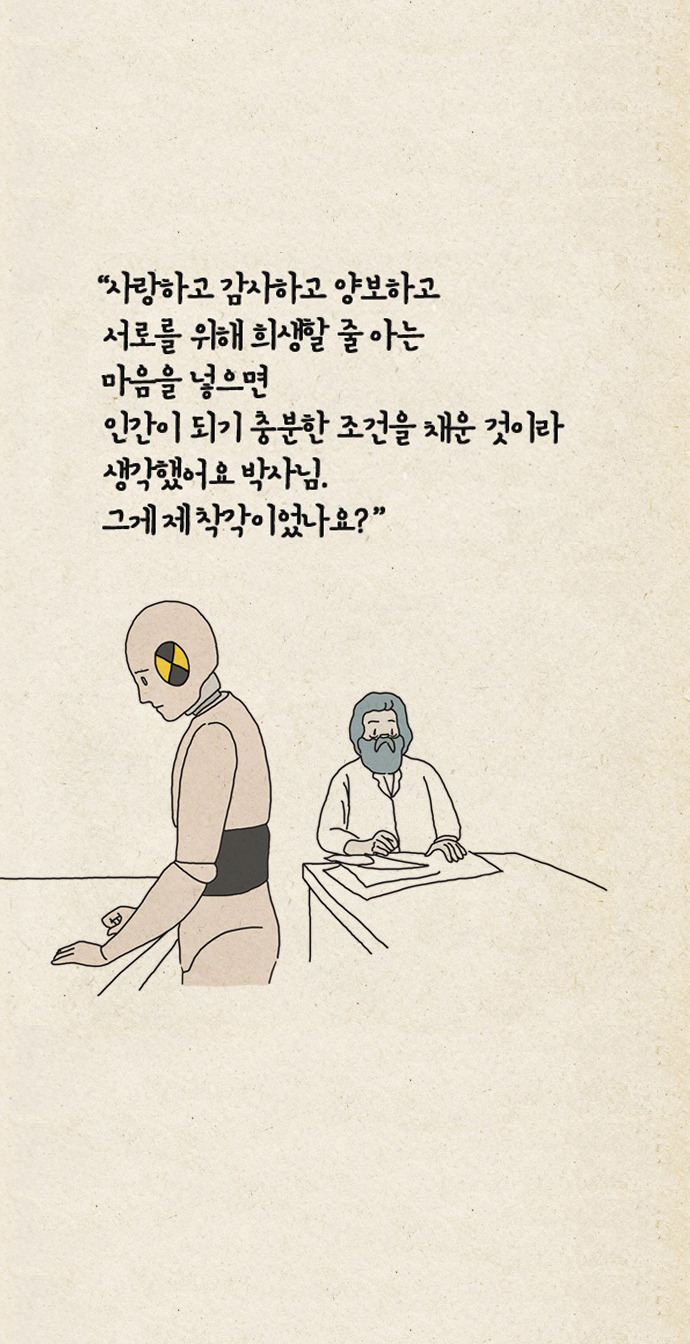 “사랑하고 감사하고 양보하고
서로를 위해 희생할 줄 아는
마음을 넣으면
인간이 되기 충분한 조건을 채운 것이라
생각했어요 박사님.
그게 제 착각이었나요?”